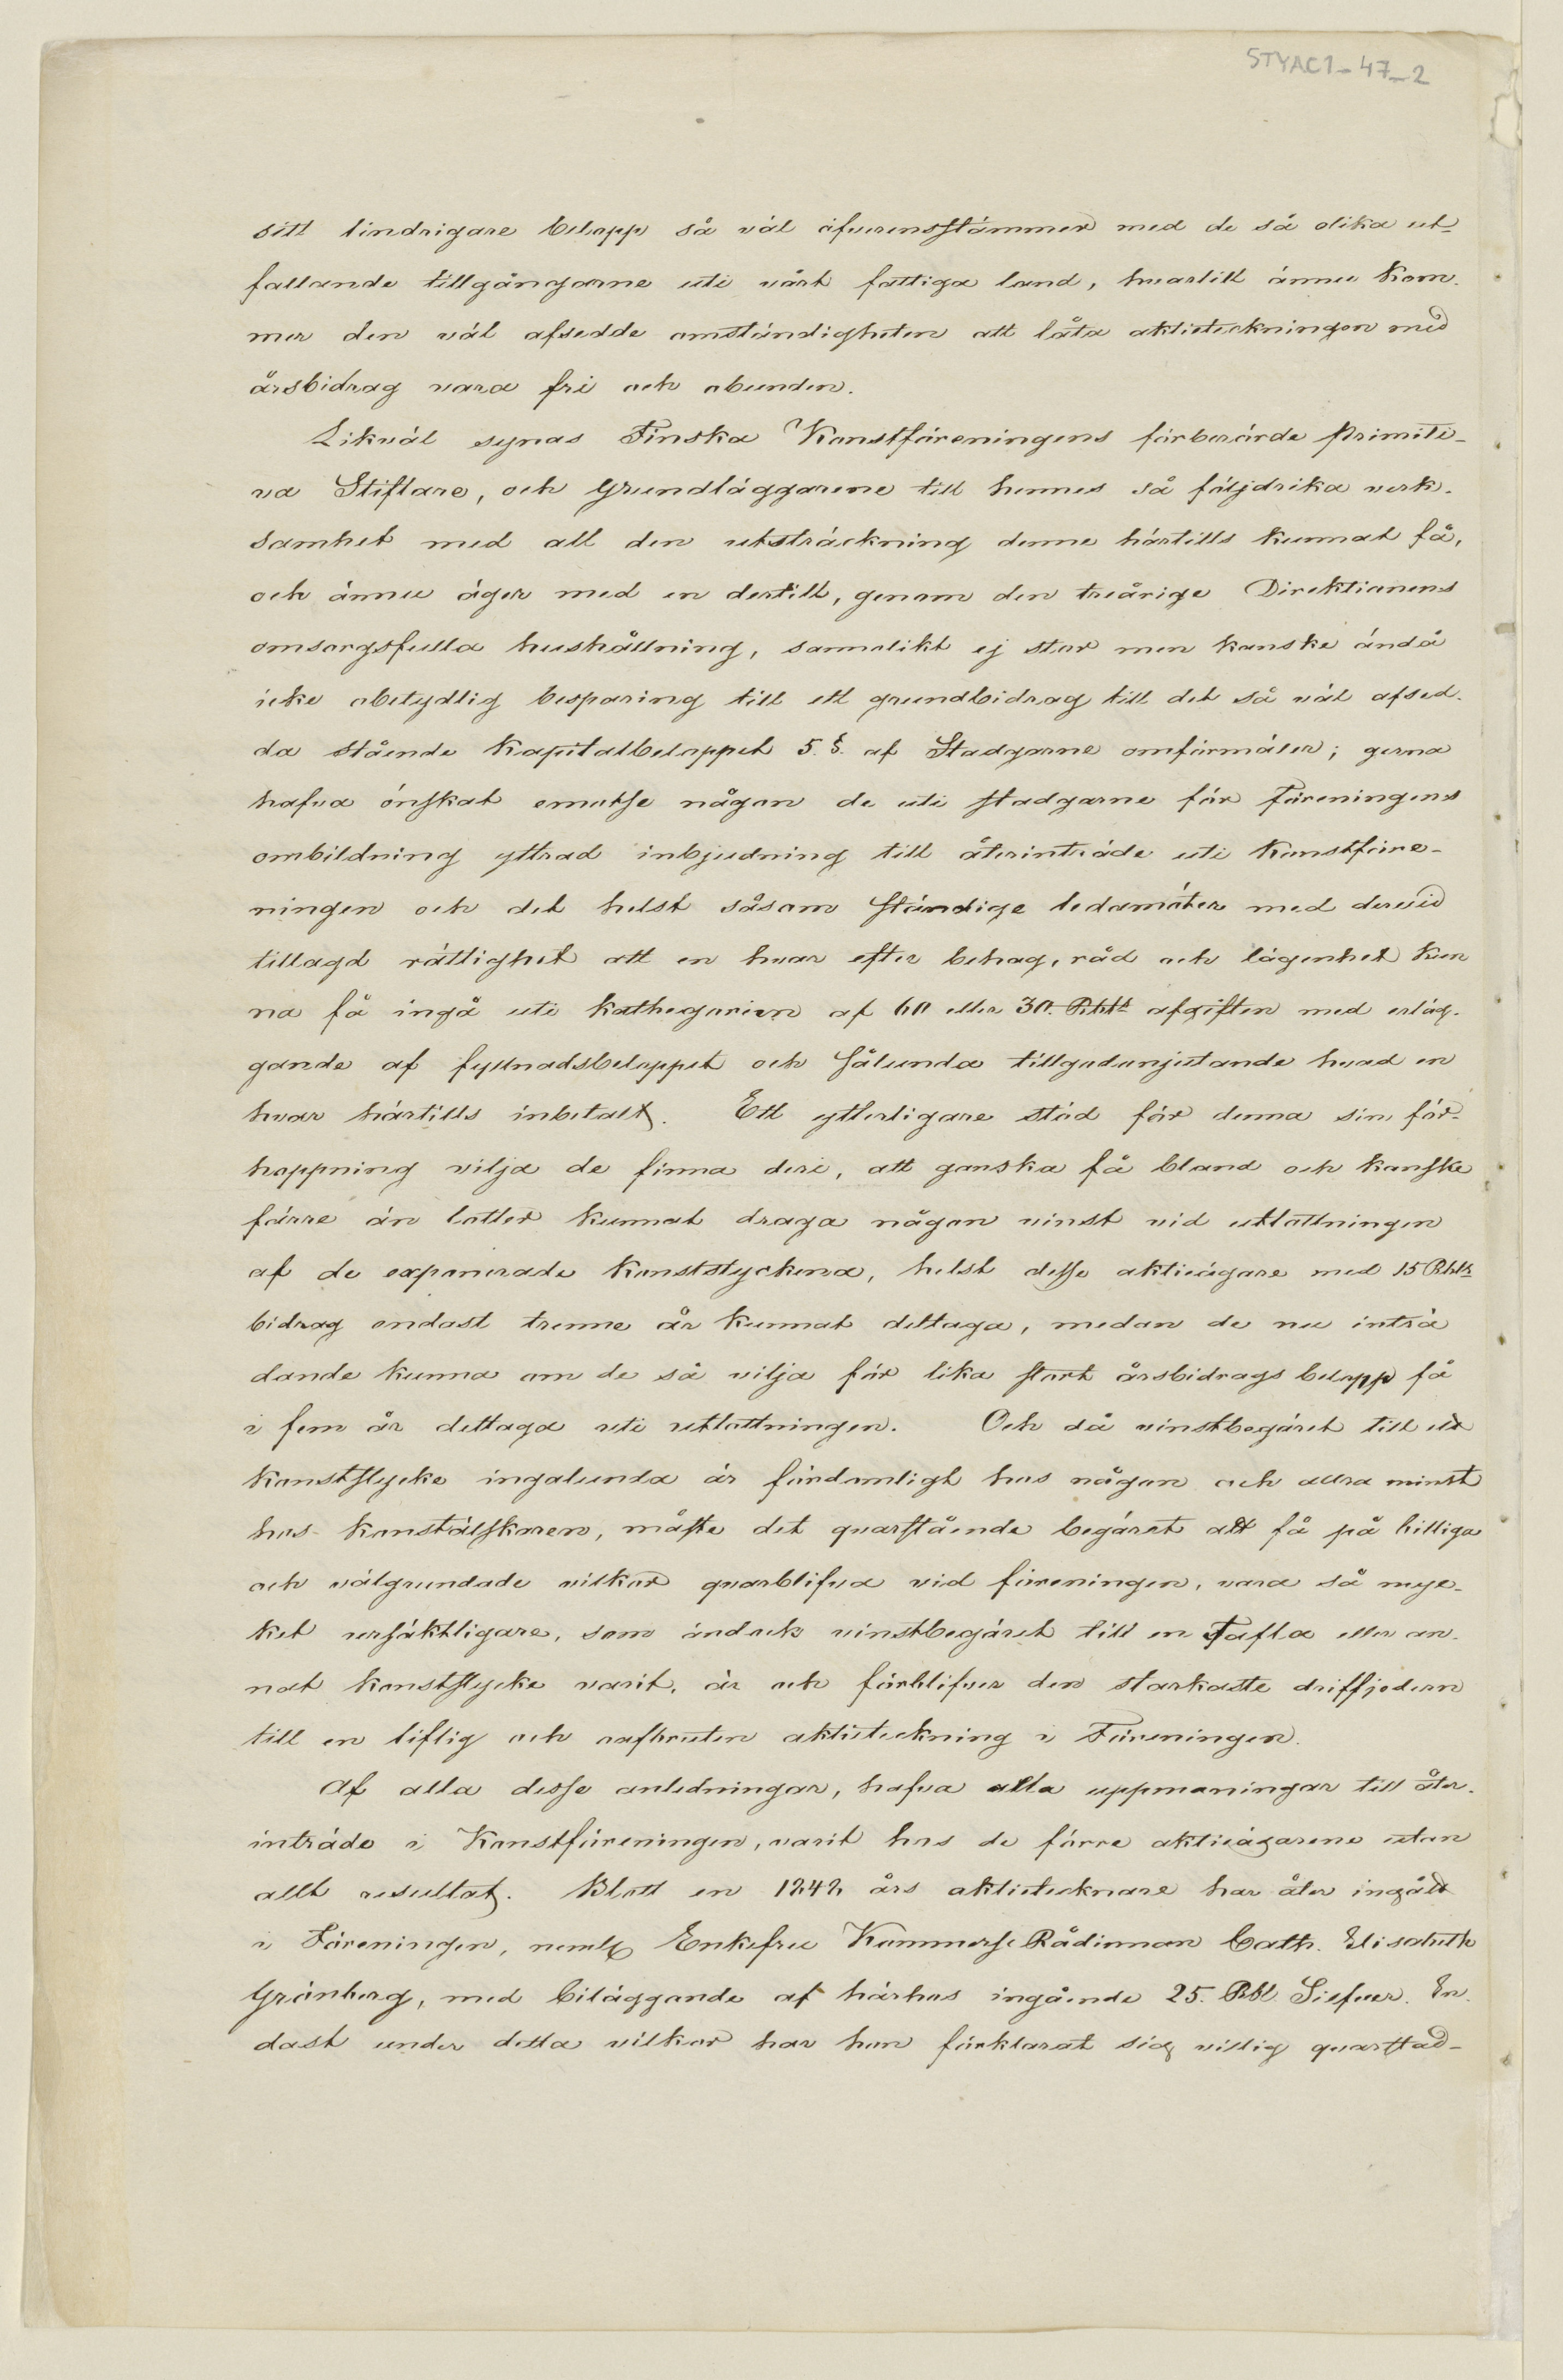 STYAC1-47-2
sitt lindrigare belopp så väl öfverensstämmer med de så olika ut-
fallande tillgångarne uti vårt fattiga land, hvartill ännu kom-
mer den väl afsedde omständigheten att låta aktieteckningen med
årsbidrag vara fri och obunden.
Likväl synas Finska Konstföreningens förberörde Primiti-
va Stiftare, och Grundläggarene till hennes så följdrika verk-
samhet med all den utsträckning denne härtills kunnat få,
och ännu äger med en dertill, genom den treårige Direktionens
omsorgsfulla hushållning, sannolikt ej stor men kanske ändå
icke obetydlig besparing till ett grundbidrag till det så väl afsed-
da stående Kapitalbeloppet 5. §. af Stadgarne omförmäler; gerna
hafva önskat emotse någon de uti stadgarne för Föreningens
ombildning yttrad inbjudning till återinträde uti Konstföre-
ningen och det helst såsom ständige ledamöter med dervid
tillagd rättighet att en hvar efter behag, råd och lägenhet kun
na få ingå uti kathegorien af 60 eller 30. Rblr afgiften med erläg-
gande af fyllnadsbeloppet och sålunda tillgodonjutande hvad en
hvar härtills inbetalt. Ett ytterligare stöd för denna sin för-
hoppning vilja de finna deri, att ganska få bland och kanske
färre än lotter kunnat draga någon vinst vid utlottningen
af de exponerade konststyckena, helst desse aktieägare med 15 Rblr
bidrag endast trenne år kunnat deltaga, medan de nu inträ
dande kunna om de så vilja för lika stort årsbidrags belopp få
i fem år deltaga uti utlottningen. Och då vinstbegäret till ett
konststycke ingalunda är fördömligt hos någon och allra minst
hos konstälskaren, måste det quarstående begäret att få på billiga
och välgrundade vilkor quarblifva vid föreningen, vara så myc-
ket ursäktligare, som ändock vinstbegäret till en Tafla eller an-
nat konststycke varit, är och förblifver den starkaste driffjedern
till en liflig och oafbruten aktieteckning i Föreningen.
Af alla desse anledningar, hafva alla uppmaningar till åter-
inträde i Konstföreningen, varit hos de förre aktieägarene utan
allt resultat. Blott en 1848 års aktietecknare har åter ingått
i Föreningen, neml. Enkefru Kommerse Rådinnan Cath. Elisabeth
Grönberg, med biläggande af härhos ingående 25. Rbl. Silfver. En-
dast under detta vilkor har hon förklarat sig villig quarstad-